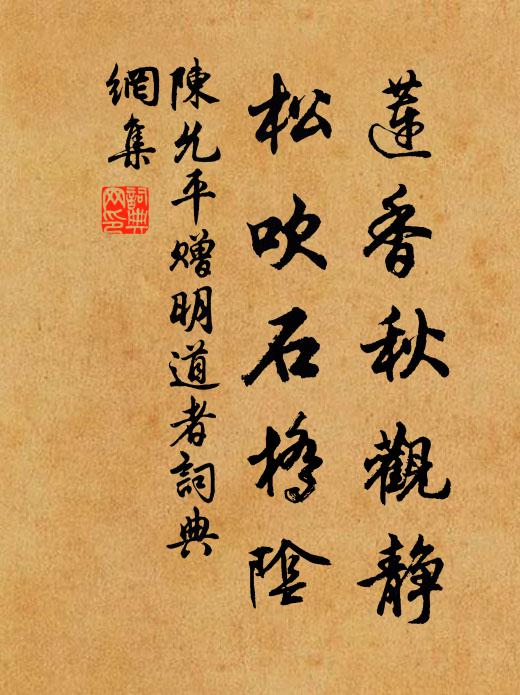 蓮香秋觀静
松吹石橋陰
陳允平贈明道者詞典
網集
詞典
网印